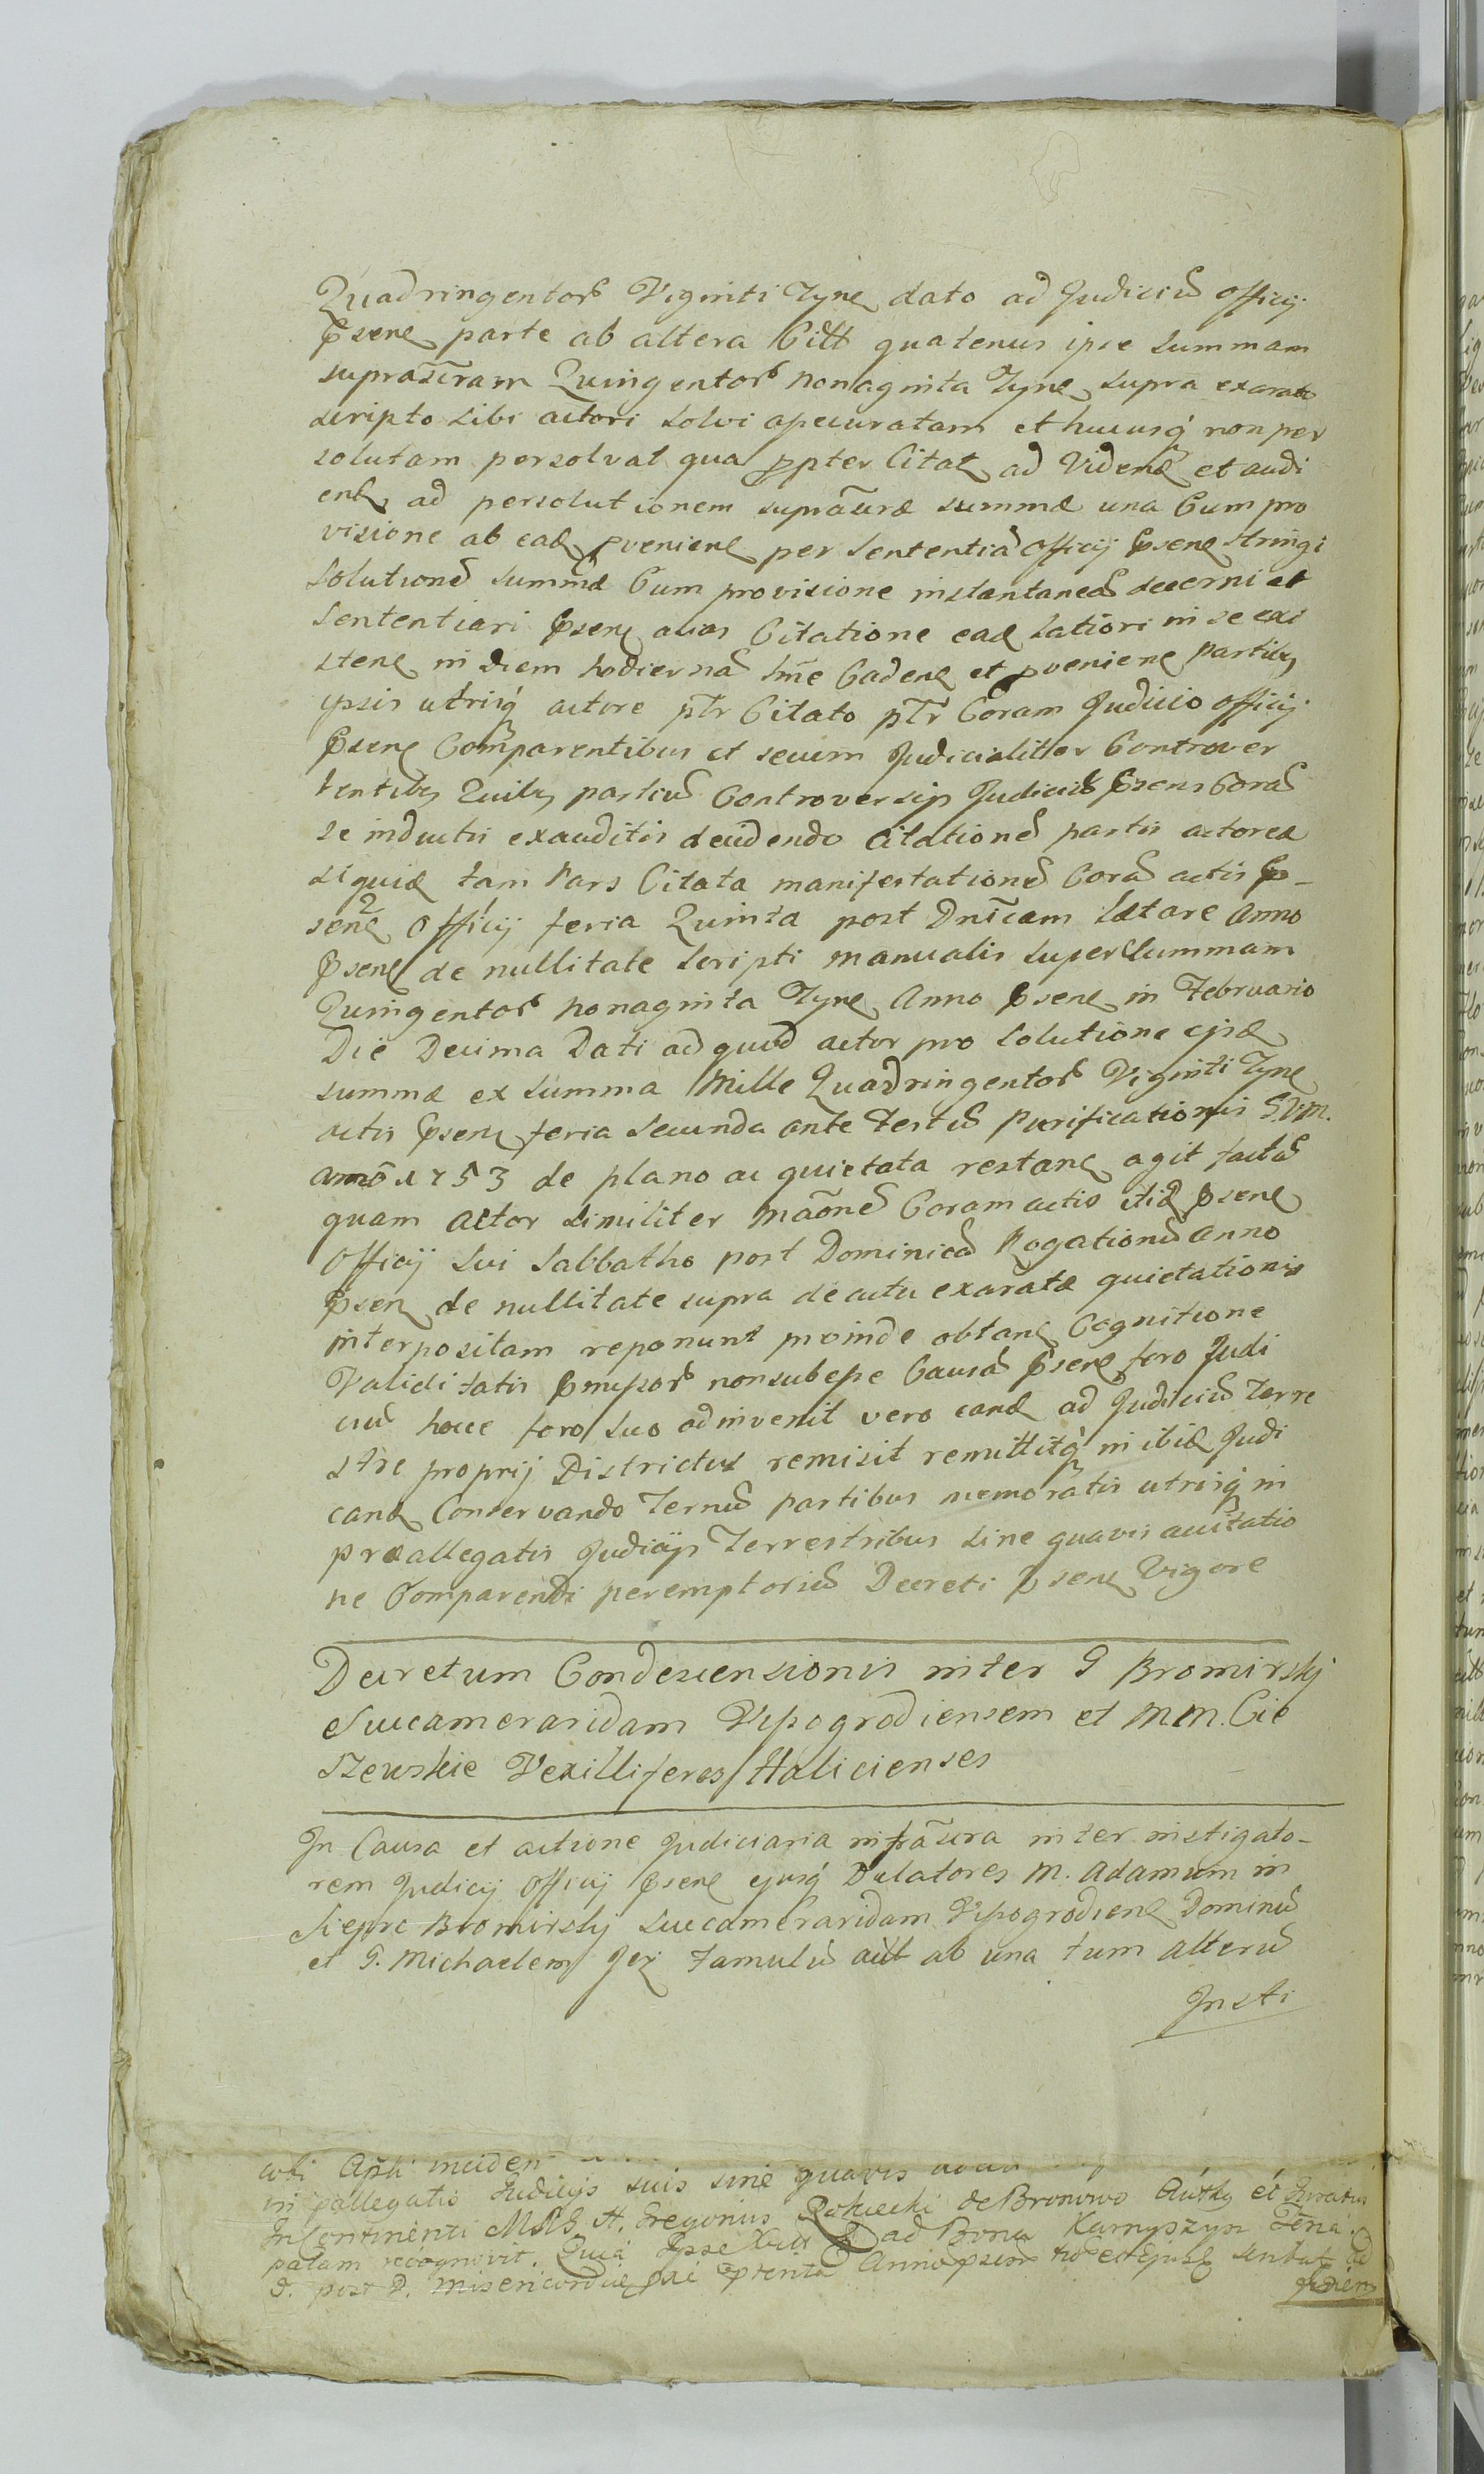 Quadringentor Viginti Tyne dato ad Judiciu Officij
Psene parte ab altera Citt quatenus ipse Summam
suprascram Quingentor nonaginta Tyne supra exarato
scripto sibi actori solvi apecuratam et hucusq non per
solutam persolvat qua ppter Citat ad Vidend et audi
end ad persolutionem suprascræ summæ una Cum pro
visione ab ead pveniene per Sententia Officij Psene stringi
Solutione summæ Cum provisione instantanea decerni et
Sententiari Psene alias Citatione ead latiori in se exi
stene in diem hodierna hne Cadene et pveniene Partibz
ipsis utrisq actore ptr Citato ptr Coram Judicio Officij
Psene Comparentibus et secum Judicialitter Controver
tentibz Quibz partiu Controversijs Judiciu Psens Cora
se inductis exauditis decidendo Citatione partis actoreæ
siquid tam Pars Citata manifestatione Cora actis P-
sene Officij feria Quinta post Dnicam Lætare Anno
Psene de nullitate Scripti manualis super Summam
Quingentor nonaginta Tyne Anno Psene in Februario
Die Decima Dati ad quod actor pro Solutione ejsd
summæ ex Summa Mille Quadringentor Viginti Tyne
actis Psene feria Secunda ante Festu Purificationis S.V.M.
anno 1753 de plano ac quietata restane agit facta
quam actor similiter maone Coram actis itid Psene
Officij Sui Sabbatho post Dominica Rogationu Anno
Psene de nullitate supra de actu exaratæ quietationis
interpositam reponunt proinde obstane Cognitione
Validitatis Pmissor non subesse Causa Psene foro Judi
ciu hocce foro suo adinvenit vero eand ad Judiciu Terre
stre proprij Districtus remisit remittitq in ibid Judi
cand Conservando Ternu partibus memoratis utrisq in
præallegatis Judicijs Terrestribus sine quavis acitatio
ne Comparendi peremptoriu Decreti Psene Vigore
Decretum Condescensionis inter G Bromirskj
Succameraridam Vyssogrodiensem et MM. Cie
szewskie Vexilliferos Halicienses
In Causa et actione Judiciaria infrascra inter instigato-
rem Judicij Officij Psene ejusq Delatores M. Adamum in
Siepre Bromirskj Succameraridam Vyssogrodiene Dominu
et G. Michaelem Jez famulu aut ab una tum alteru
Insti
in pallegatis Judicijs suis sine quavis
In Continenti MRG H. Gregorius Rokicki de Bronowo
palam recognovit. Quia Ipse ad Bona Karnyszyn
d. post D. Misericordiæ